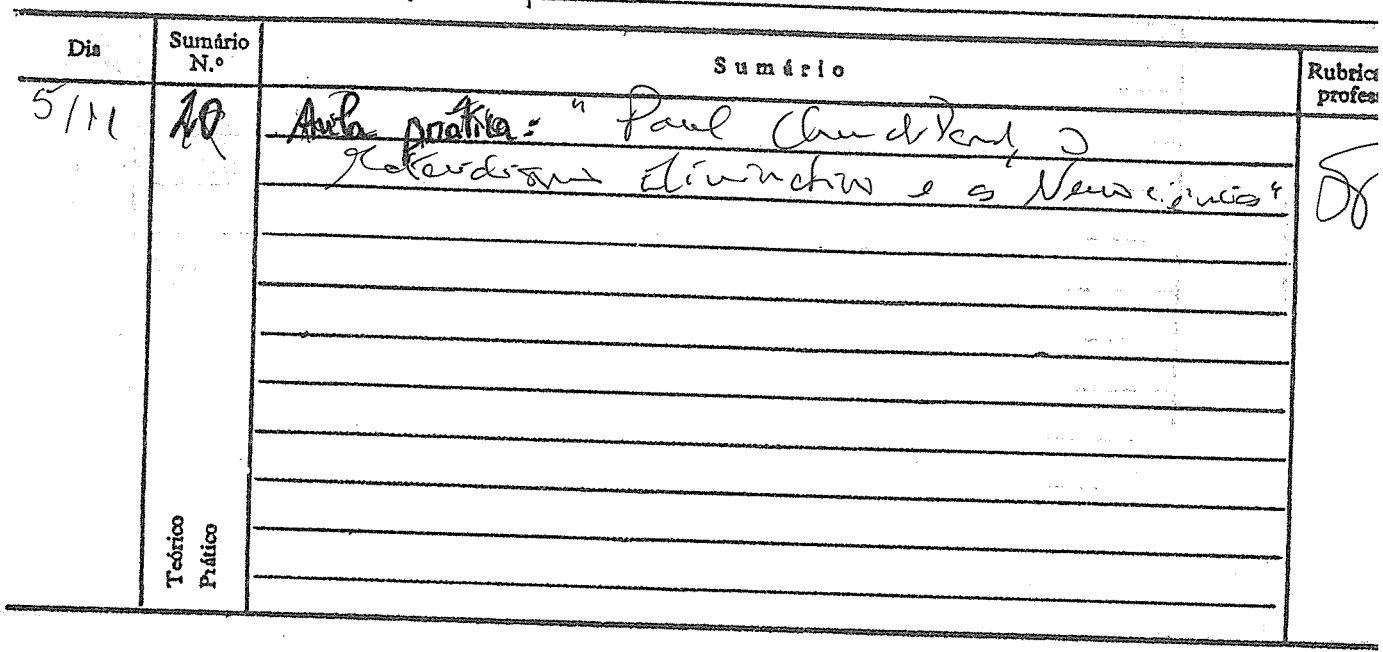 Dia
Sumário N.º
Sumário
Rubrica
profes
5/11
Aula prática: "Paul Churchland, O
Materialismo Eliminativo e as Neurociências"
Teórico
Prático